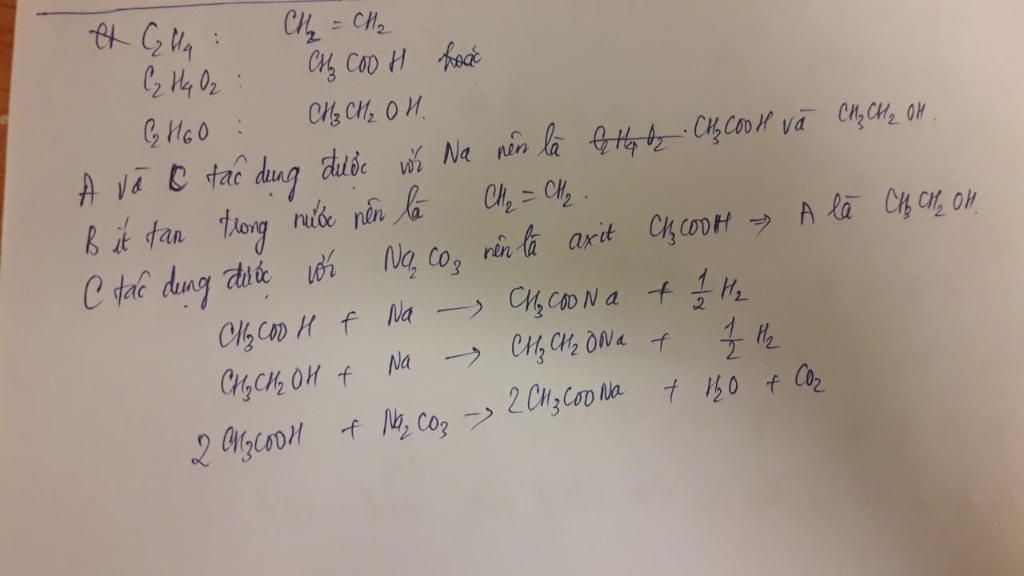 C₂H₄ : CH₂ = CH₂
C₂H₄O₂ : CH₃COOH hoặc
C₂H₆O : CH₃CH₂OH.
A và C tác dụng được với Na nên là C₂H₄O₂ . CH₃COOH và CH₃CH₂OH.
B ít tan trong nước nên là CH₂ = CH₂.
C tác dụng được với Na₂CO₃ nên là axit CH₃COOH ⇒ A là CH₃CH₂OH.
CH₃COOH + Na → CH₃COONa + 1/2 H₂
CH₃CH₂OH + Na → CH₃CH₂ONa + 1/2 H₂
2CH₃COOH + Na₂CO₃ → 2CH₃COONa + H₂O + CO₂